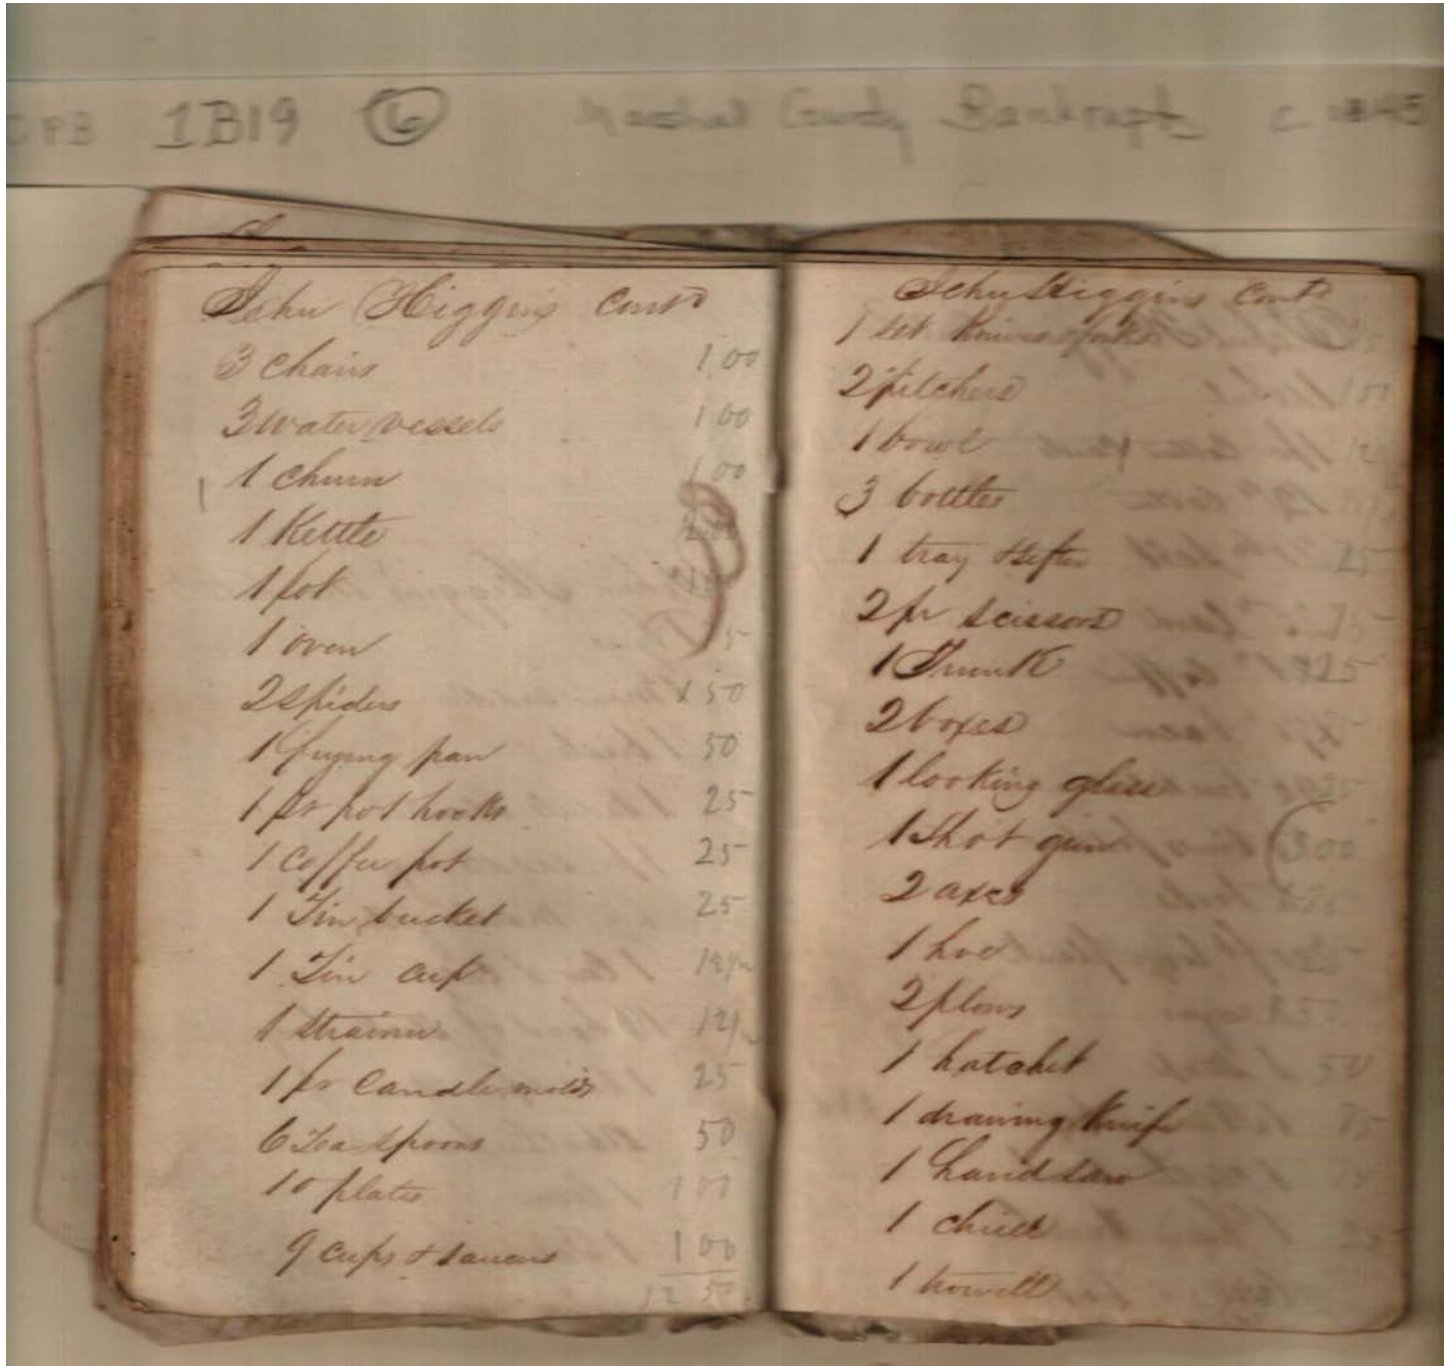 1B19 6 County Bankrupts
John Higgins Contd
3 chairs 1 00
3 water vessels 1 00
1 churn 1 00
1 Kettle
1 pot
1 oven
2 spiders 1 50
1 frying pan 50
1 pr pot hooks 25
1 coffee pot 25
1 Tin bucket 25
1 Tin cup 12½
1 strainer 12½
1 pr Candle molds 25
6 Tea spoons 50
10 plates 1 00
9 cups & saucers 1 00
12 50
John Higgins Contd
1 set Knives & forks
2 pitchers
1 bowl
3 bottles
1 tray & sifter 25
2 pr scissors
1 Trunk
2 boxes
1 looking glass
1 Shot gun
2 axes
1 hoe
2 plows
1 hatchet 50
1 drawing Knife 75
1 hand saw 75
1 chisel 25
1 howell